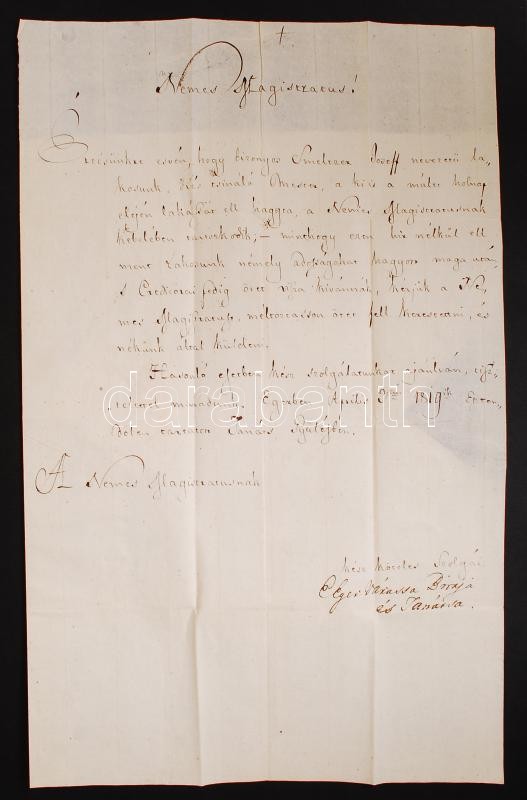 Nemes Magistratus!
Értésünkre esvén, hogy bizonyos Smelczer Joseff nevezetü la-
kosunk, Kés tsináló Mester, a ki is a múlt holnap
elején lakását ell hagyta, a Nemes Magistratusnak
kebelében tartozkodik; minthogy ezen hir nélkül ell
ment Lakosunk némely adóságokat hagyott maga után
s Creditorai pedig őtet viza kivánnák, kérjük a Ne-
mes Magistratust, méltoztasson őtet fell kerestetni, és
nékünk által küldeni.
Hasonló esetben kész szolgálatunkat ajánlván, tisz-
telettel maradunk. Egerben Április 3án 1819ik Eszten-
dőben tartatott Tanács Gyülésben.
A Nemes Magistratusnak
kész köteles Szolgái
Eger Várassa Birája
és Tanátsa.
darabanth